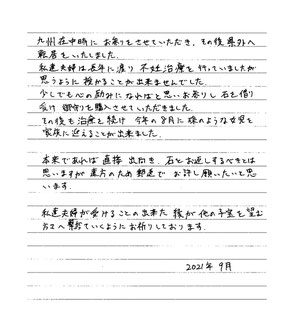 九州在中時に お参りをさせていただき、その後県外へ
転居をいたしました。
私達夫婦は長年に渡り 不妊治療を行っていましたが
思うように授かることが出来ませんでした。
少しでも心の励みになればと思いお参りし 石を借り
受け 御守を購入させていただきました。
その後も治療を続け 今年の8月に 珠のような女児を
家族に迎えることが出来ました。
本来であれば 直接 出向き、石をお返しするべきとは
思いますが 遠方のため 郵送で お許し願いたいと思
います。
私達夫婦が受けることの出来た 後が 他の子宝を望む
方々へ 繋がっていくようにお祈りしております。
2021年 9月